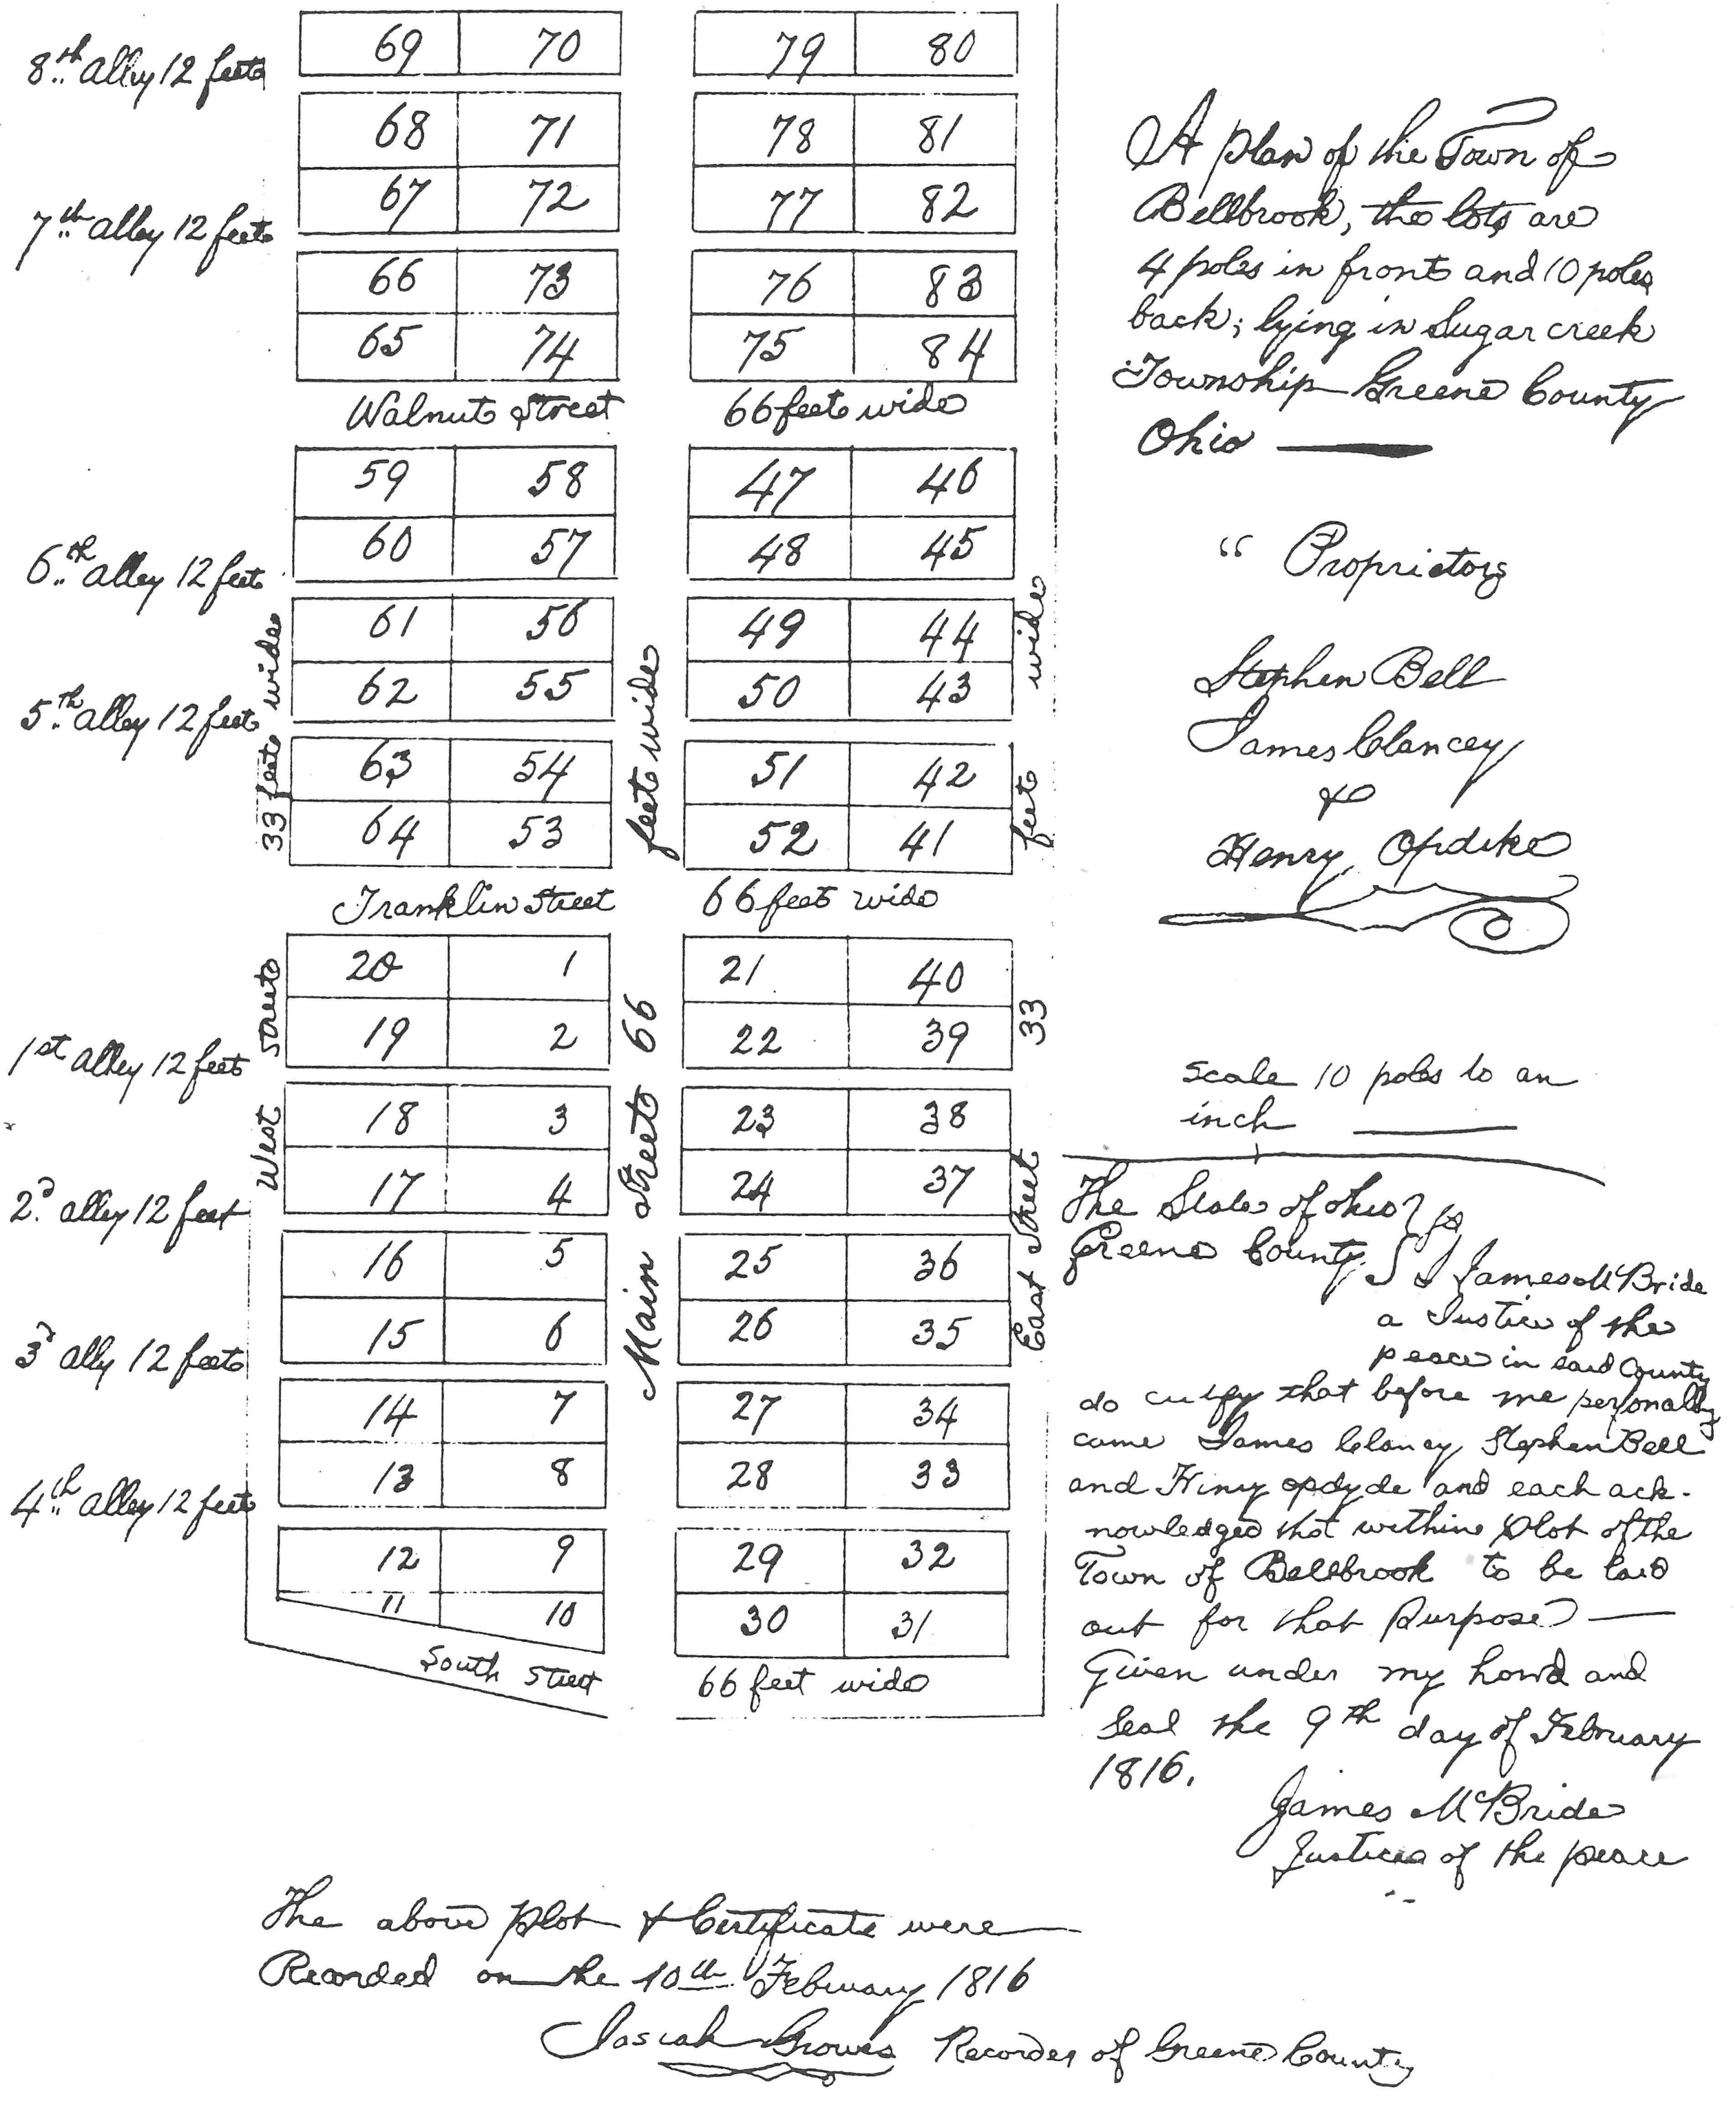 8th alley 12 feet
69 70 79 80
68 71 78 81
67 72 77 82
7th alley 12 feet
66 73 76 83
65 74 75 84
Walnut Street 66 feet wide
59 58 47 46
60 57 48 45
6th alley 12 feet
61 56 49 44
62 55 50 43
5th alley 12 feet
63 54 51 42
64 53 52 41
Franklin Street 66 feet wide
20 1 21 40
19 2 22 39
1st alley 12 feet
18 3 23 38
17 4 24 37
2d alley 12 feet
16 5 25 36
15 6 26 35
3d ally 12 feet
14 7 27 34
13 8 28 33
4th alley 12 feet
12 9 29 32
11 10 30 31
South Street 66 feet wide
West Street 33 feet wide
Main Street 66 feet wide
East Street 33 feet wide
A plan of the Town of
Bellbrook, the lots are
4 poles in front and 10 poles
back; lying in Sugar creek
Township Greene County
Ohio
" Proprietors
Stephen Bell
James Clancey
&
Henry Opdike
Scale 10 poles to an
inch
The State of Ohio
Greene County
I James McBride
a Justice of the
peace in said County
do certify that before me personally
came James Clancy Stephen Bell
and Hinry opdyde and each ack-
nowledged that withine plot of the
Town of Bellbrook to be laid
out for that Purpose
Given under my hand and
Seal the 9th day of February
1816.
James McBride
Justice of the peace
The above plot & Certificate were
Recorded on the 10th February 1816
Josiah Grover Recorder of Greene County